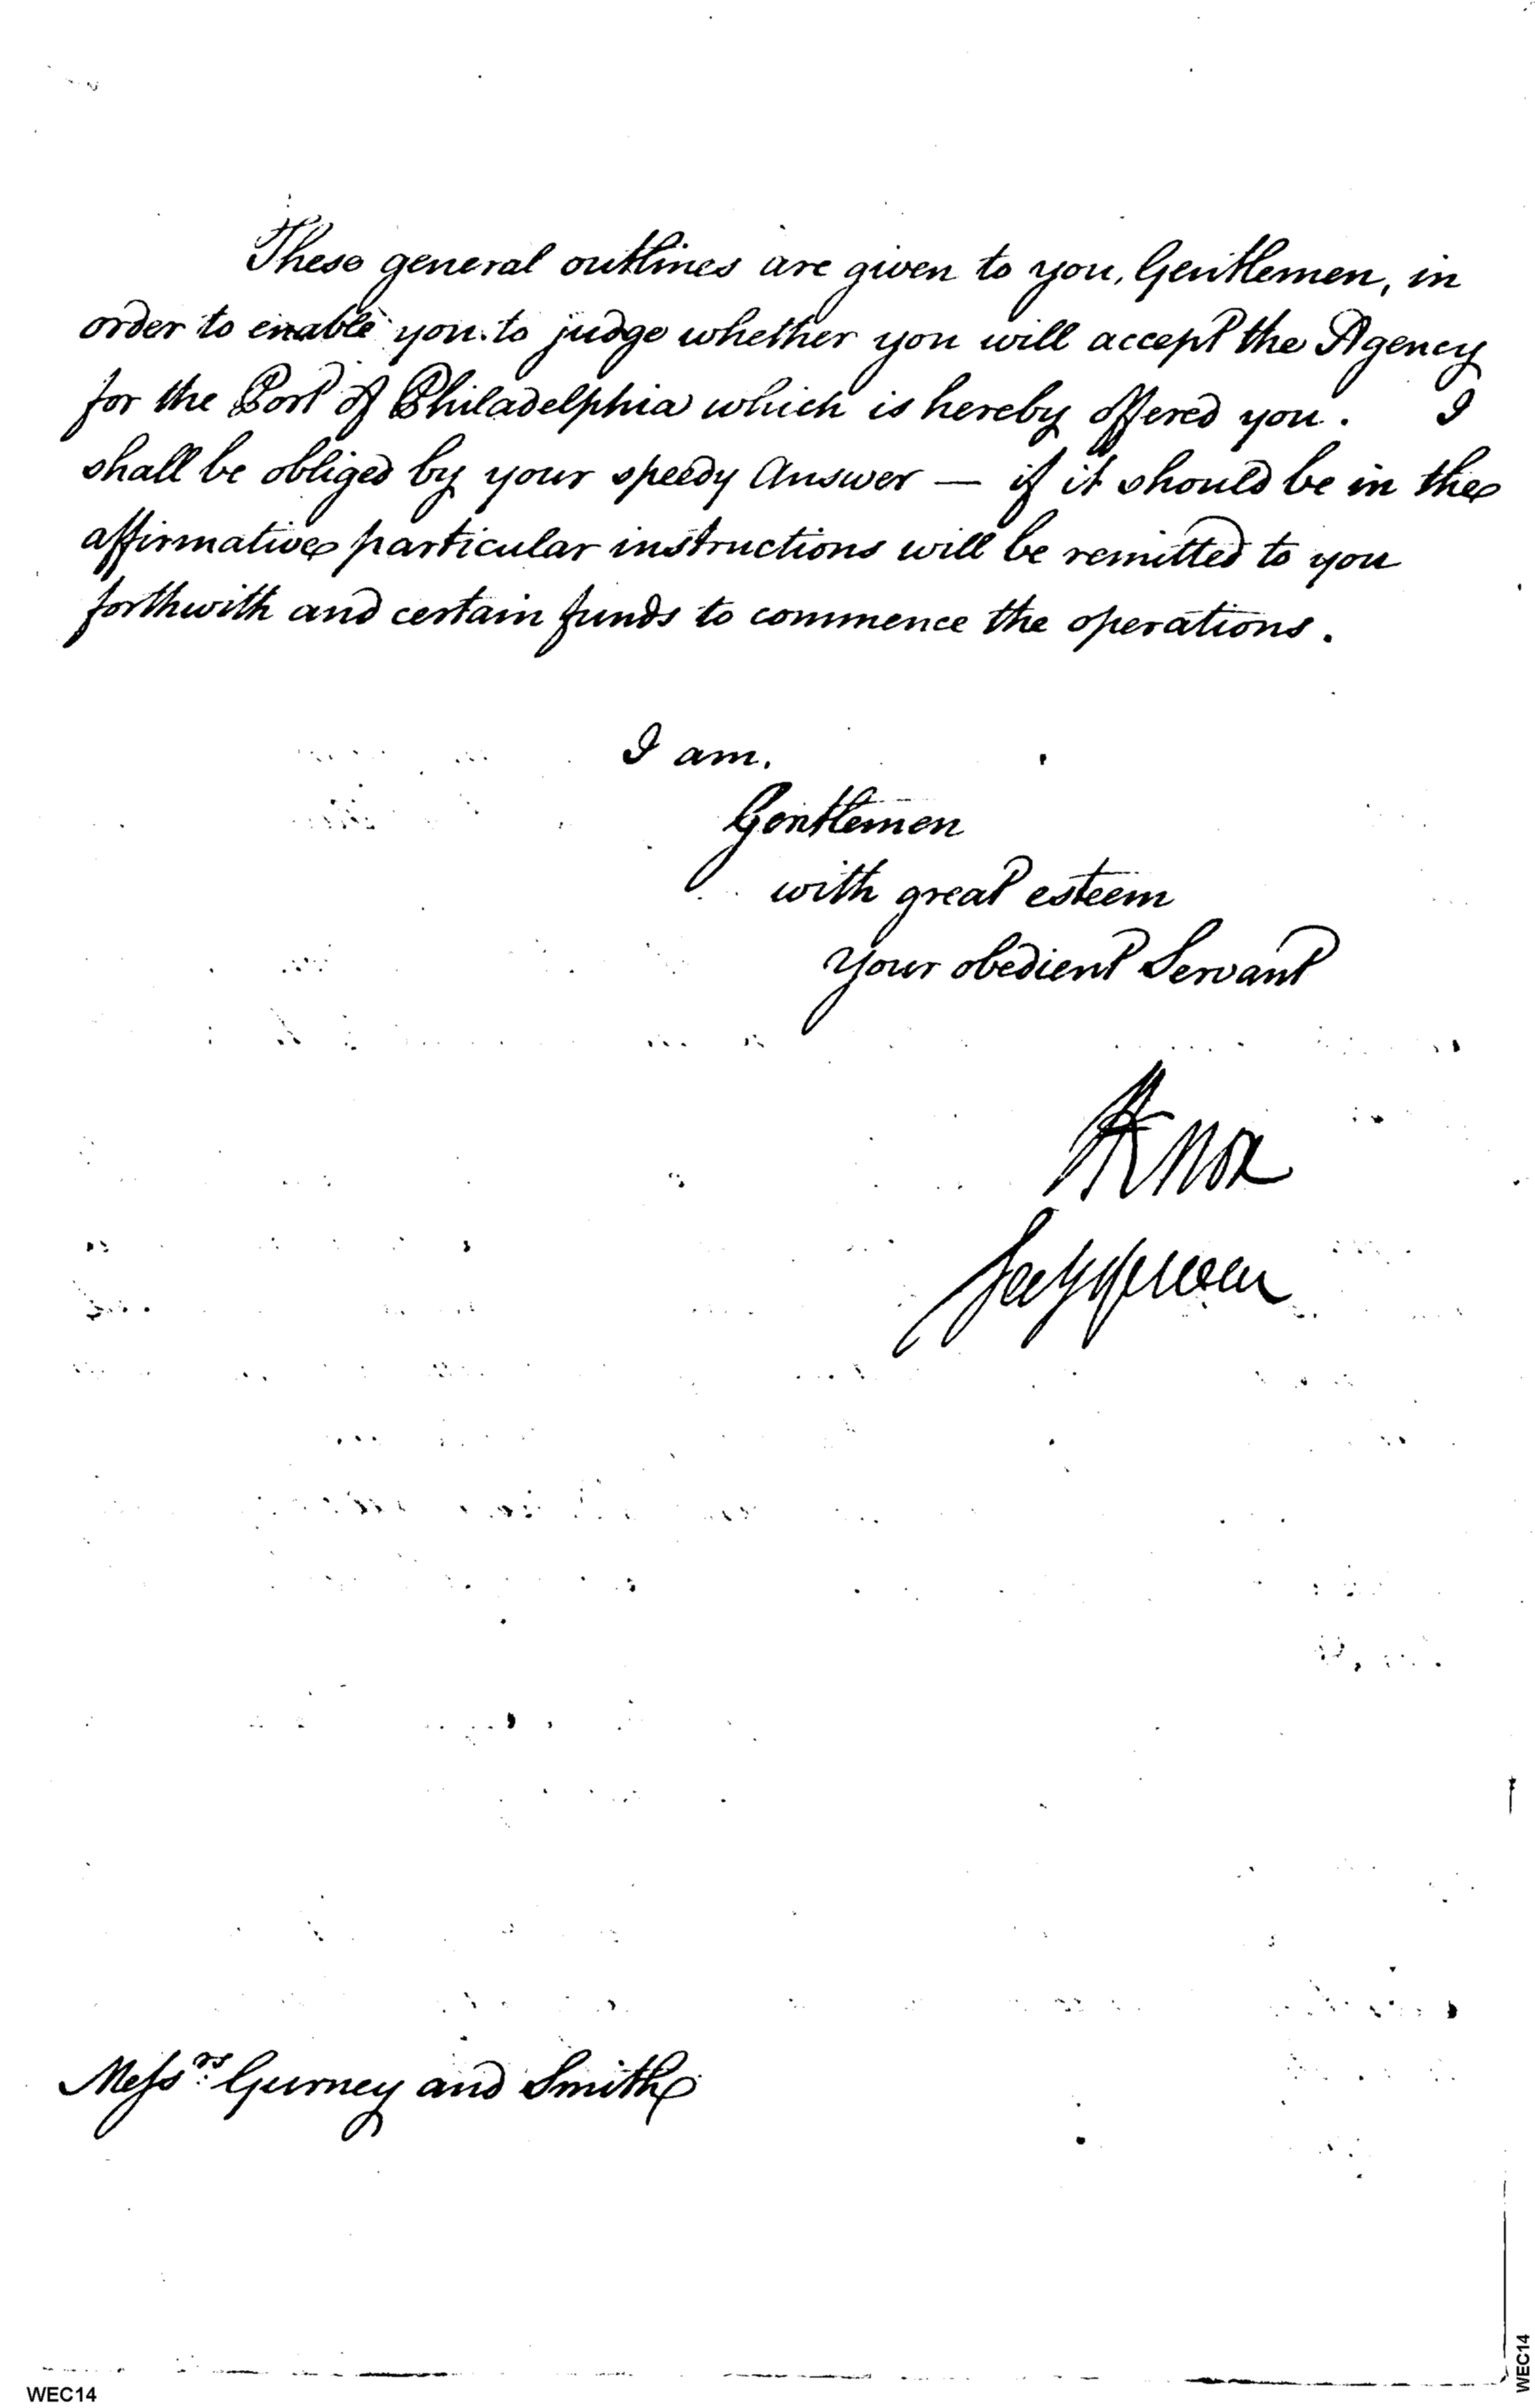 These general outlines are given to you, Gentlemen, in
order to enable you to judge whether you will accept the Agency
for the Port of Philadelphia which is hereby offered you. I
shall be obliged by your speedy answer — if it should be in the
affirmative particular instructions will be remitted to you
forthwith and certain funds to commence the operations.
I am.
Gentlemen
with great esteem
your obedient Servant
HKnox
Secy of war
Messrs. Gurney and Smith
WEC14
WEC14